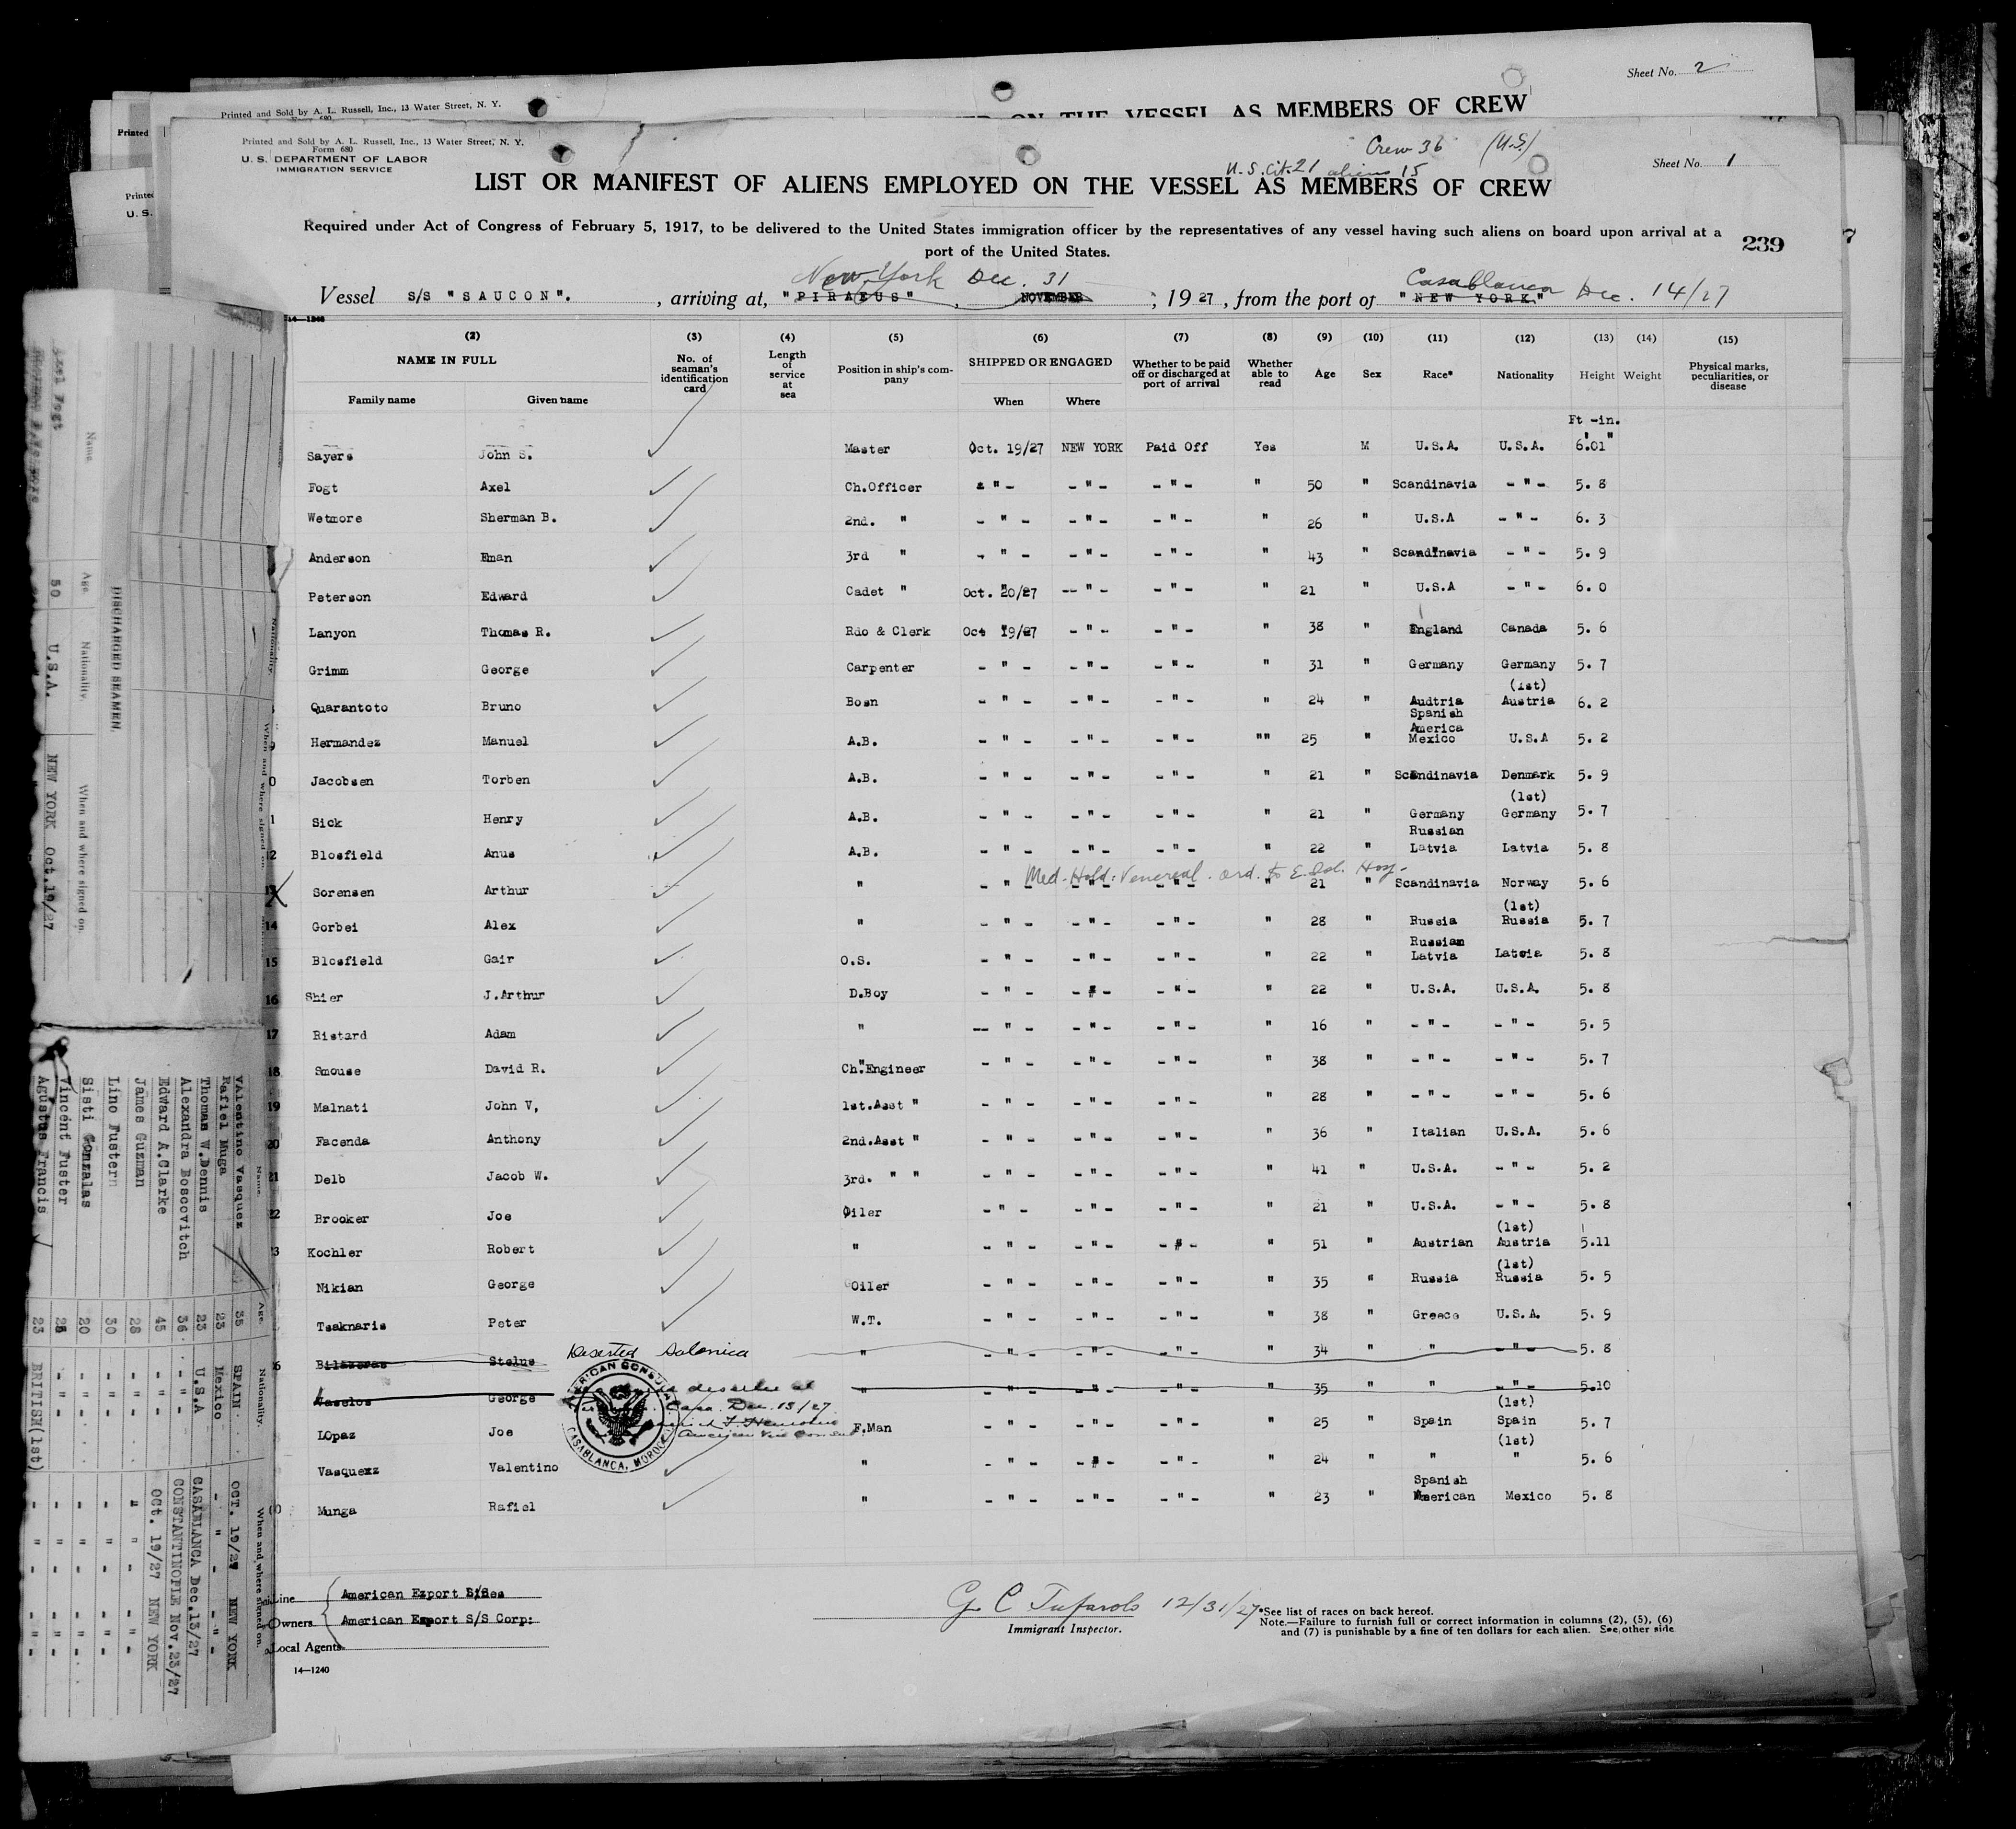 Sheet No. 2
Printed and Sold by A. L. Russell, Inc., 13 Water Street, N. Y.
ON THE VESSEL AS MEMBERS OF CREW
Printed and Sold by A. L. Russell, Inc., 13 Water Street, N. Y.
Form 680
U. S. DEPARTMENT OF LABOR
IMMIGRATION SERVICE
Crew 36 (U.S.)
U.S. Cit. 21 aliens 15
Sheet No. 1
LIST OR MANIFEST OF ALIENS EMPLOYED ON THE VESSEL AS MEMBERS OF CREW
Required under Act of Congress of February 5, 1917, to be delivered to the United States immigration officer by the representatives of any vessel having such aliens on board upon arrival at a
port of the United States.
239
New York Dec. 31 Casablanca Dec. 14/27
Vessel S/S "SAUCON". , arriving at, "PIRAEUS" , NOVEMBER , 1927 , from the port of "NEW YORK"
14—1240
(2) (3) (4) (5) (6) (7) (8) (9) (10) (11) (12) (13) (14) (15)
NAME IN FULL No. of seaman's identification card Length of service at sea Position in ship's company SHIPPED OR ENGAGED Whether to be paid off or discharged at port of arrival Whether able to read Age Sex Race* Nationality Height Weight Physical marks, peculiarities, or disease
Family name Given name When Where
Ft -in.
Sayers John S. Master Oct. 19/27 NEW YORK Paid Off Yes M U.S.A. U.S.A. 6.01"
Fogt Axel Ch.Officer - " - - " - - " - " 50 " Scandinavia - " - 5. 8
Wetmore Sherman B. 2nd. " - " - - " - - " - " 26 " U.S.A - " - 6. 3
Anderson Eman 3rd " - " - - " - - " - " 43 " Scandinavia - " - 5. 9
Peterson Edward Cadet " Oct. 20/27 -- " - - " - " 21 " U.S.A - " - 6. 0
Lanyon Thomas R. Rdo & Clerk Oct 19/27 - " - - " - " 38 " England Canada 5. 6
Grimm George Carpenter - " - - " - - " - " 31 " Germany Germany 5. 7
(1st)
Quarantoto Bruno Bosn - " - - " - - " - " 24 " Audtria Austria 6. 2
Spanish
America
9 Hermandez Manuel A.B. - " - - " - - " - "" 25 " Mexico U.S.A 5. 2
0 Jacobsen Torben A.B. - " - - " - - " - " 21 " Scandinavia Denmark 5. 9
(1st)
1 Sick Henry A.B. - " - - " - - " - " 21 " Germany Germany 5. 7
Russian
2 Blosfield Anus A.B. - " - - " - - " - " 22 " Latvia Latvia 5. 8
Med. Hold: Venereal. ord. to E. Isl. Hosp.
13 Sorensen Arthur " - " - - " - - " - " 21 " Scandinavia Norway 5. 6
(1st)
14 Gorbei Alex " - " - - " - - " - " 28 " Russia Russia 5. 7
Russian
15 Blosfield Gair O.S. - " - - " - - " - " 22 " Latvia Latvia 5. 8
16 Shier J.Arthur D.Boy - " - - " - - " - " 22 " U.S.A. U.S.A. 5. 8
17 Ristard Adam " -- " - - " - - " - " 16 " - " - - " - 5. 5
18 Smouse David R. Ch.Engineer - " - - " - - " - " 38 " - " - - " - 5. 7
19 Malnati John V, 1st.Asst " - " - - " - - " - " 28 " - " - - " - 5. 6
20 Facenda Anthony 2nd.Asst " - " - - " - - " - " 36 " Italian U.S.A. 5. 6
21 Delb Jacob W. 3rd. " " - " - - " - - " - " 41 " U.S.A. - " - 5. 2
22 Brooker Joe Oiler - " - - " - - " - " 21 " U.S.A. - " - 5. 8
(1st)
3 Kochler Robert " - " - - " - - " - " 51 " Austrian Austria 5.11
(1st)
Nikian George Oiler - " - - " - - " - " 35 " Russia Russia 5. 5
Tsaknaris Peter W.T. - " - - " - - " - " 38 " Greece U.S.A. 5. 9
Deserted Salonica
6 Stelus " - " - - " - - " - " 34 " " - " - 5. 8
Vaselos George " - " - - " - - " - " 35 " " - " - 5.10
deserter at
Casa. Dec. 13/27
American Vice Consul
AMERICAN CONSULATE
CASABLANCA, MOROCCO
(1st)
LOpaz Joe F.Man - " - - " - - " - " 25 " Spain Spain 5. 7
(1st)
Vasquezz Valentino " - " - - " - - " - " 24 " " " 5. 6
Spanish
Munga Rafiel " - " - - " - - " - " 23 " American Mexico 5. 8
Line American Export Lines
Owners American Export S/S Corp:
Local Agents
14—1240
12/31/27
Immigrant Inspector.
*See list of races on back hereof.
Note.—Failure to furnish full or correct information in columns (2), (5), (6)
and (7) is punishable by a fine of ten dollars for each alien. See other side
DISCHARGED SEAMEN.
Name. Age. Nationality. When and where signed on.
Axel Fogt 50 U.S.A. NEW YORK Oct.19/27
Name. Age. Nationality. When and where signed on.
Valentino Vasquez 35 SPAIN OCT. 19/27 NEW YORK
Rafiel Muga 23 Mexico - " - - " -
Thomas W.Dennis 23 U.S.A CASABLANCA Dec.13/27
Alexandra Boscovitch 36 - " - CONSTANTINOPLE Nov.23/27
Edward A.Clarke 45 - " - OCt. 19/27 NEW YORK
James Guzman 28 - " - " - " -
Lino Fustern 30 - " - - " - - " -
Sisti Gonzalas 20 - " - - " - - " -
Vincent Fuster 28 - " - - " - - " -
Agustus Francis 23 BRITISH(1st) - " - - " -